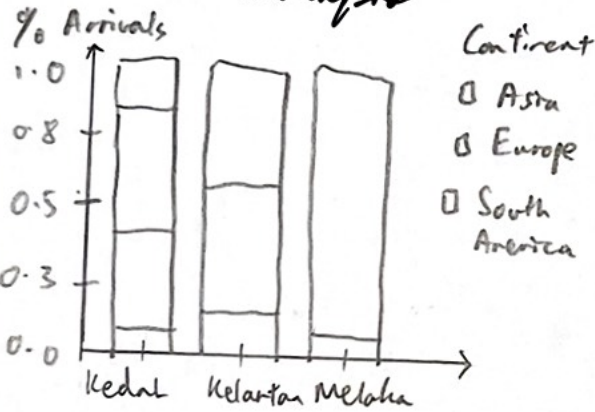 % Arrivals
1.0
0.8
0.5
0.3
0.0
Kedah
Kelantan
Melaka
Continent
Asia
Europe
South
America